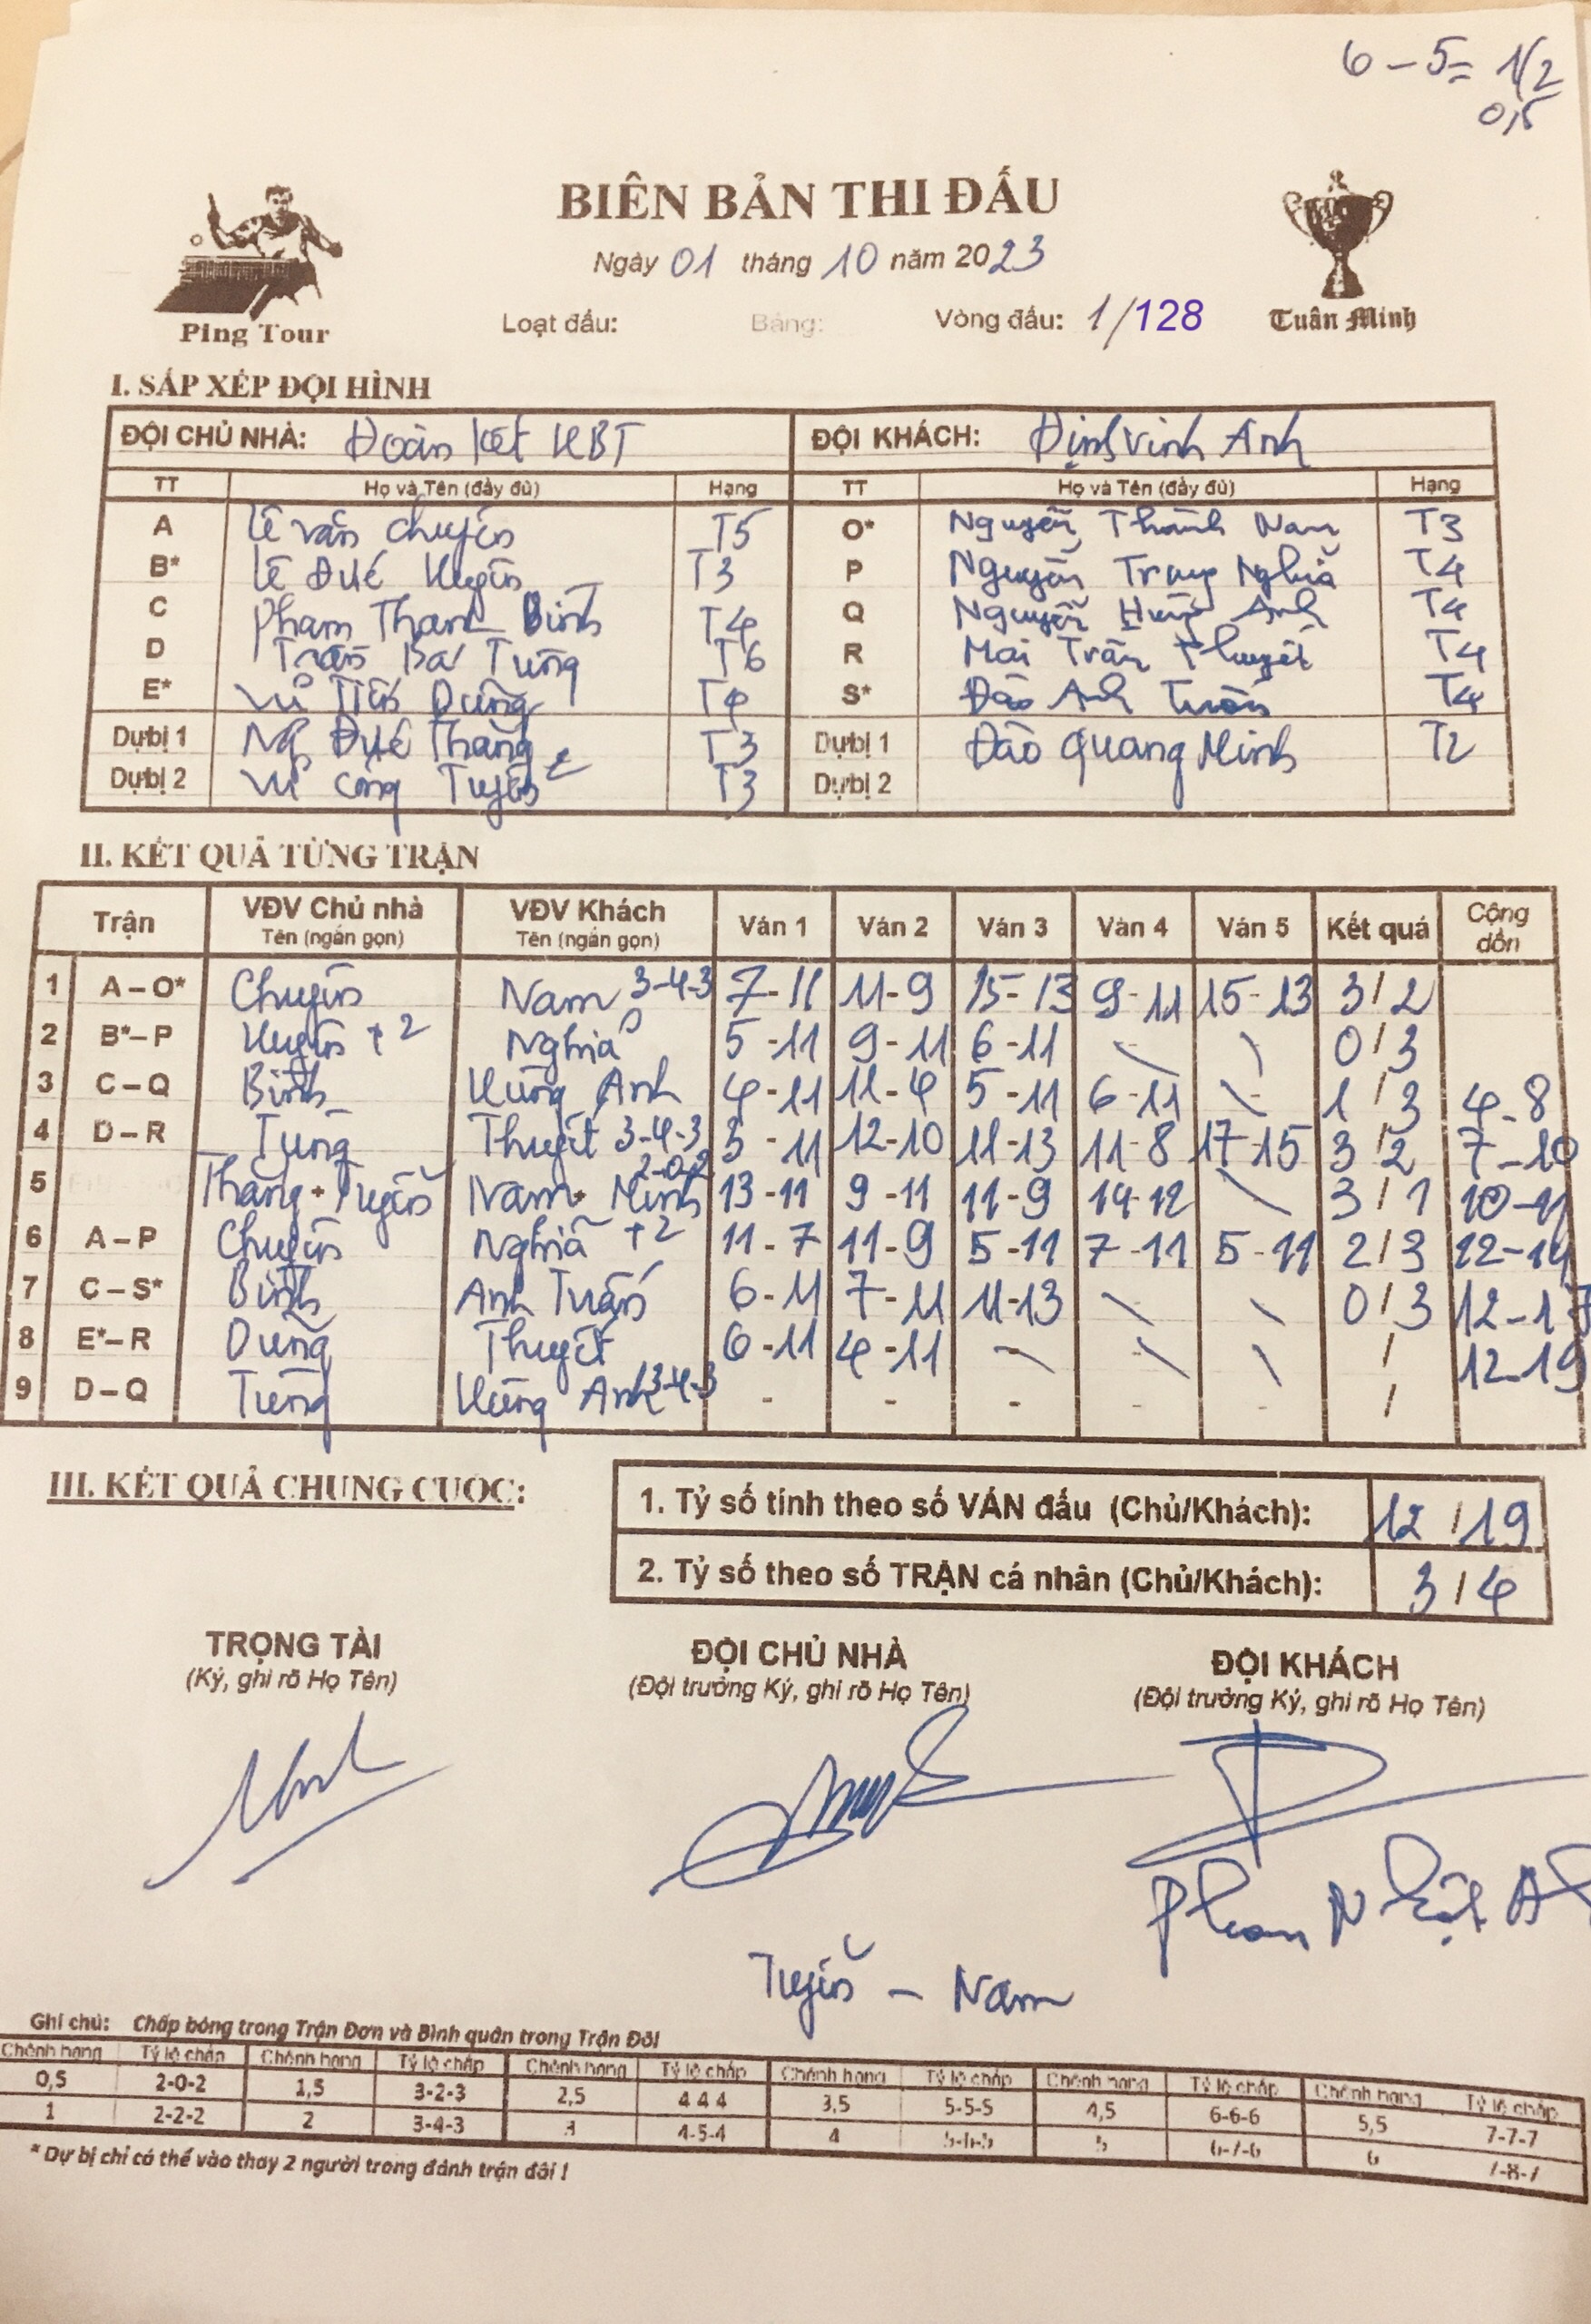 6 - 5 = 1/2
0,5
BIÊN BẢN THI ĐẤU
Ngày 01 tháng 10 năm 2023
Ping Tour
Loạt đấu: Bảng: Vòng đấu: 1/128
Tuấn Minh
I. SẮP XẾP ĐỘI HÌNH
ĐỘI CHỦ NHÀ: Đoàn Kết KBT ĐỘI KHÁCH: Định Vinh Anh
TT Họ và Tên (đầy đủ) Hạng TT Họ và Tên (đầy đủ) Hạng
A Lê Văn Chuyên T5 O* Nguyễn Thành Nam T3
B* Lê Đức T3 P Nguyễn Trung Nghĩa T4
C Phạm Thanh Bình T4 Q Nguyễn Hùng Anh T4
D Trần Bá Tùng T6 R Mai Trần Thuyết T4
E* Vũ Tiến Dũng T4 S* Đào Anh Tuấn T4
Dự bị 1 Ng Đức Thắng T3 Dự bị 1 Đào Quang Minh T2
Dự bị 2 Vũ Công Tuyển T3 Dự bị 2
II. KẾT QUẢ TỪNG TRẬN
Trận VĐV Chủ nhà Tên (ngắn gọn) VĐV Khách Tên (ngắn gọn) Ván 1 Ván 2 Ván 3 Ván 4 Ván 5 Kết quả Cộng dồn
1 A – O* Chuyên Nam 3-4-3 7-11 11-9 15-13 9-11 15-13 3/2
2 B* – P +2 Nghĩa 5-11 9-11 6-11 - - 0/3
3 C – Q Bình Hùng Anh 4-11 11-4 5-11 6-11 - 1/3 4-8
4 D – R Tùng Thuyết 3-4-3 3-11 12-10 11-13 11-8 17-15 3/2 7-10
5 Thắng + Tuyển Nam + Minh 2-0-2 13-11 9-11 11-9 14-12 3/1 10-11
6 A – P Chuyên Nghĩa +2 11-7 11-9 5-11 7-11 5-11 2/3 12-14
7 C – S* Bình Anh Tuấn 6-11 7-11 11-13 - - 0/3 12-17
8 E* – R Dũng Thuyết 6-11 4-11 - - - / 12-19
9 D – Q Tùng Hùng Anh 3-4-3 - - - - - /
III. KẾT QUẢ CHUNG CUỘC:
1. Tỷ số tính theo số VÁN đấu (Chủ/Khách): 12/19
2. Tỷ số theo số TRẬN cá nhân (Chủ/Khách): 3/4
TRỌNG TÀI ĐỘI CHỦ NHÀ ĐỘI KHÁCH
(Ký, ghi rõ Họ Tên) (Đội trưởng Ký, ghi rõ Họ Tên) (Đội trưởng Ký, ghi rõ Họ Tên)
Phan Nhật
Tuyển - Nam
Ghi chú: Chấp bóng trong Trận Đơn và Bình quân trong Trận Đôi
Chênh hạng Tỷ lệ chấp Chênh hạng Tỷ lệ chấp Chênh hạng Tỷ lệ chấp Chênh hạng Tỷ lệ chấp Chênh hạng Tỷ lệ chấp Chênh hạng Tỷ lệ chấp
0,5 2-0-2 1,5 3-2-3 2,5 4 4 4 3,5 5-5-5 4,5 6-6-6 5,5 7-7-7
1 2-2-2 2 3-4-3 3 4-5-4 4 5-6-5 5 6-7-6 6 7-8-7
* Dự bị chỉ có thể vào thay 2 người trong đánh trận đôi !